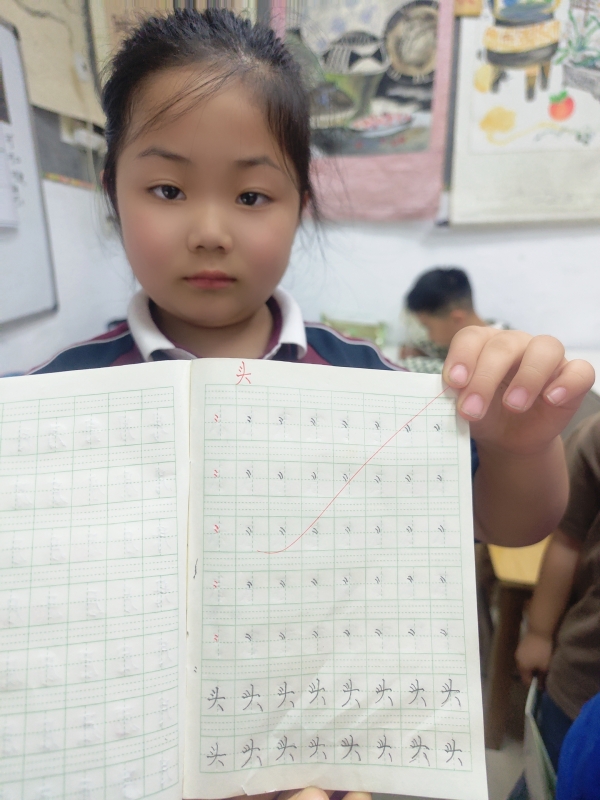 头
头 头 头 头 头 头 头 头
头 头 头 头 头 头 头 头